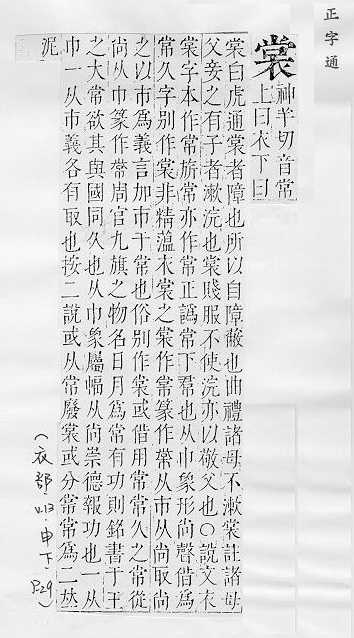 正字通
裳
神羊切音常
上曰衣下曰
裳白虎通裳者障也所以自障蔽也曲禮諸母不漱裳註諸母
父妾之有子者漱浣也裳賤服不使浣亦以敬父也○說文衣
裳字本作常旂常亦作常正譌常下帬也从巾象形尚聲借為
常久字別作裳非精薀衣裳之裳作常篆作从市从尚取尚
之以市為義言加市于常也俗別作裳或借用常常久之常從
尚从巾篆作常周官九旗之物名日月為常有功則銘書于王
之大常欲其與國同久也从巾象屬幅从尚崇德報功也一从
巾一从市義各有取也按二說或从常廢裳或分常常為二𠀤
泥
(衣部 v.13·申下·P29)